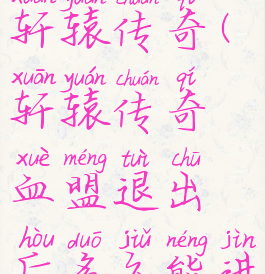 xuān yuán chuán qí
轩辕传奇(
xuān yuán chuán qí
轩辕传奇
xuè méng tuì chū
血盟退出
hòu duō jiǔ néng jìn
后多久能进